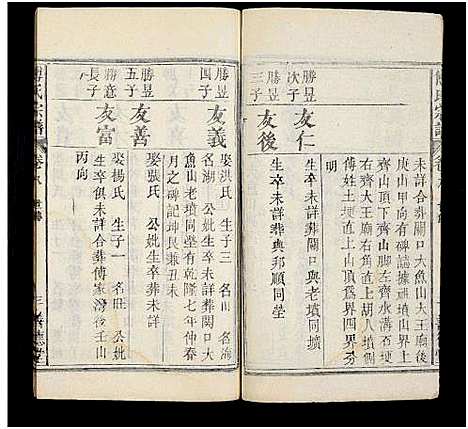 傅氏宗譜
未詳合葬關口大魚山大王廟後
庚山甲向有碑誌據祖墳山界四
齊山頂下齊山脚左齊水溝直至
右齊大王廟右角直上胡八墳
傳姓土埂直放爲界四界分明
勝昱次子
友仁
生卒未詳葬關口與老墳同擴
勝昱三子
友後
生卒未詳葬與邦順同塋
勝昱四子
友義
娶洪氏 生子三 名山 名海
名湖 公妣生卒未詳葬關口大
魚山老墳同塋有乾隆七年仲春
月之碑記坤艮兼丑未
勝昱五子
友善
娶張氏 公妣生卒葬未詳
勝意長子
友富
娶楊氏 生子一 名旺 公妣
生卒俱未詳合葬傳家灣後壬山
丙向
傅氏宗譜
卷八
三 善德堂